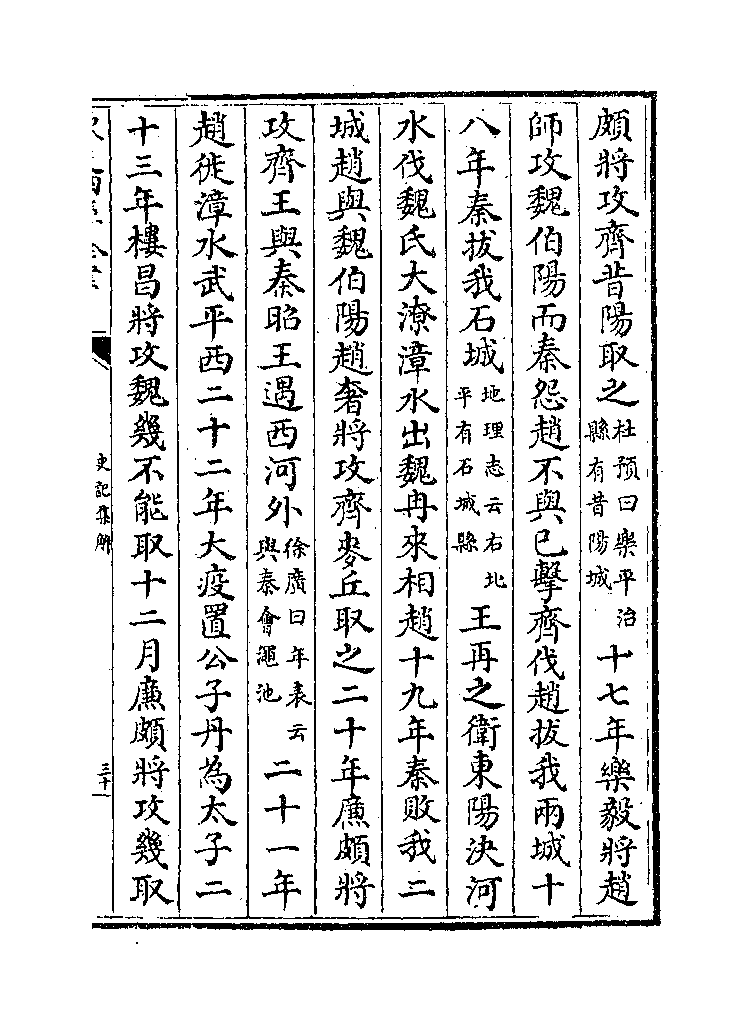 頗將攻齊昔陽取之杜預曰樂平治縣有昔陽城十七年樂毅將趙
師攻魏伯陽而秦怨趙不與已擊齊伐趙拔我兩城十
八年秦拔我石城地理志云右北平有石城縣王再之衛東陽決河
水伐魏氏大潦漳水出魏冉來相趙十九年秦敗我二
城趙與魏伯陽趙奢將攻齊麥丘取之二十年廉頗將
攻齊王與秦昭王遇西河外徐廣曰年表云與秦會澠池二十一年
趙徙漳水武平西二十二年大疫置公子丹為太子二
十三年樓昌將攻魏幾不能取十二月廉頗將攻幾取
史記集解
三十一